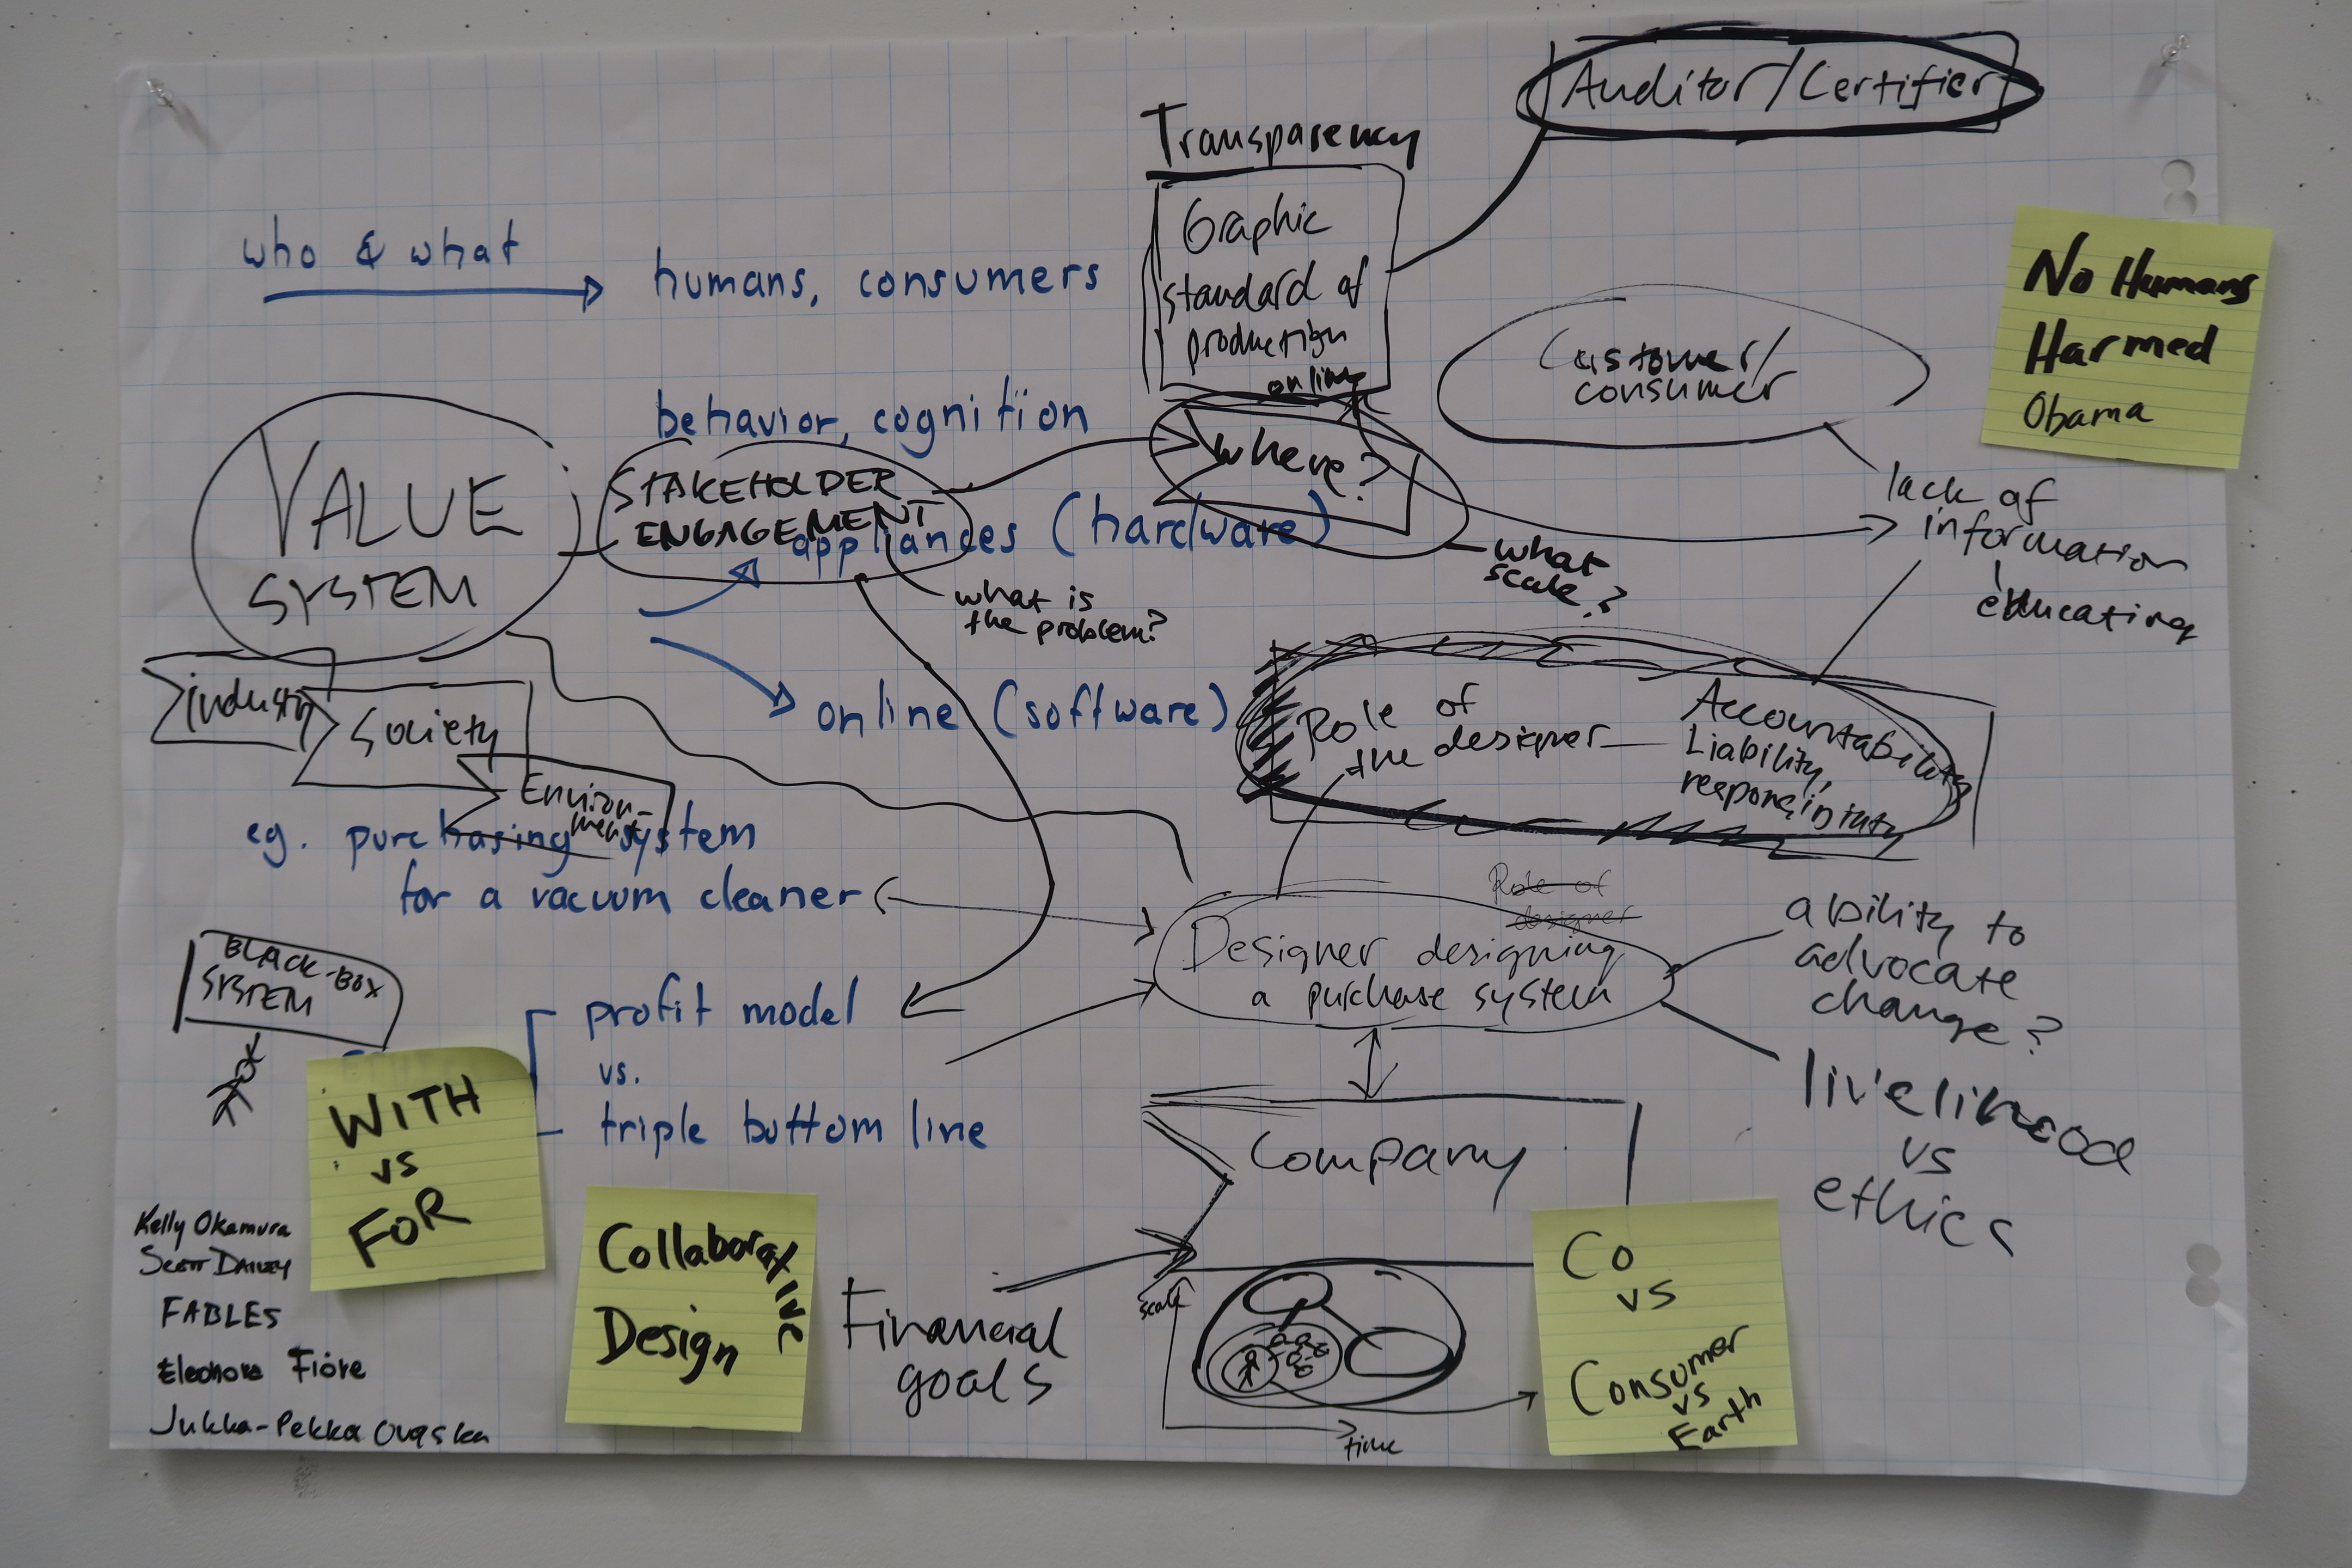 Auditor/Certifier
Transparency
Graphic
standard of
production
online
who & what
humans, consumers
No Humans
Harmed
Obama
Customer/
consumer
behavior, cognition
VALUE
SYSTEM
STAKEHOLDER
ENGAGEMENT
where?
appliances (hardware)
what
scale?
lack of
information
educating
what is
the problem?
industry
Society
Environ-
ment
online (software)
Role of
the designer
Accountability
Liability,
eg. purchasing system
for a vacuum cleaner
Role of
designer
Designer designing
a purchase system
ability to
advocate
change?
BLACK-BOX
SYSTEM
profit model
vs.
triple bottom line
livelihood
vs
ethics
WITH
vs
FOR
Company
Collaborative
Design
Financial
goals
scale
time
Co
vs
Consumer
vs
Earth
Kelly Okamura
Scott
FABLES
Eleonora Fiore
Jukka-Pekka